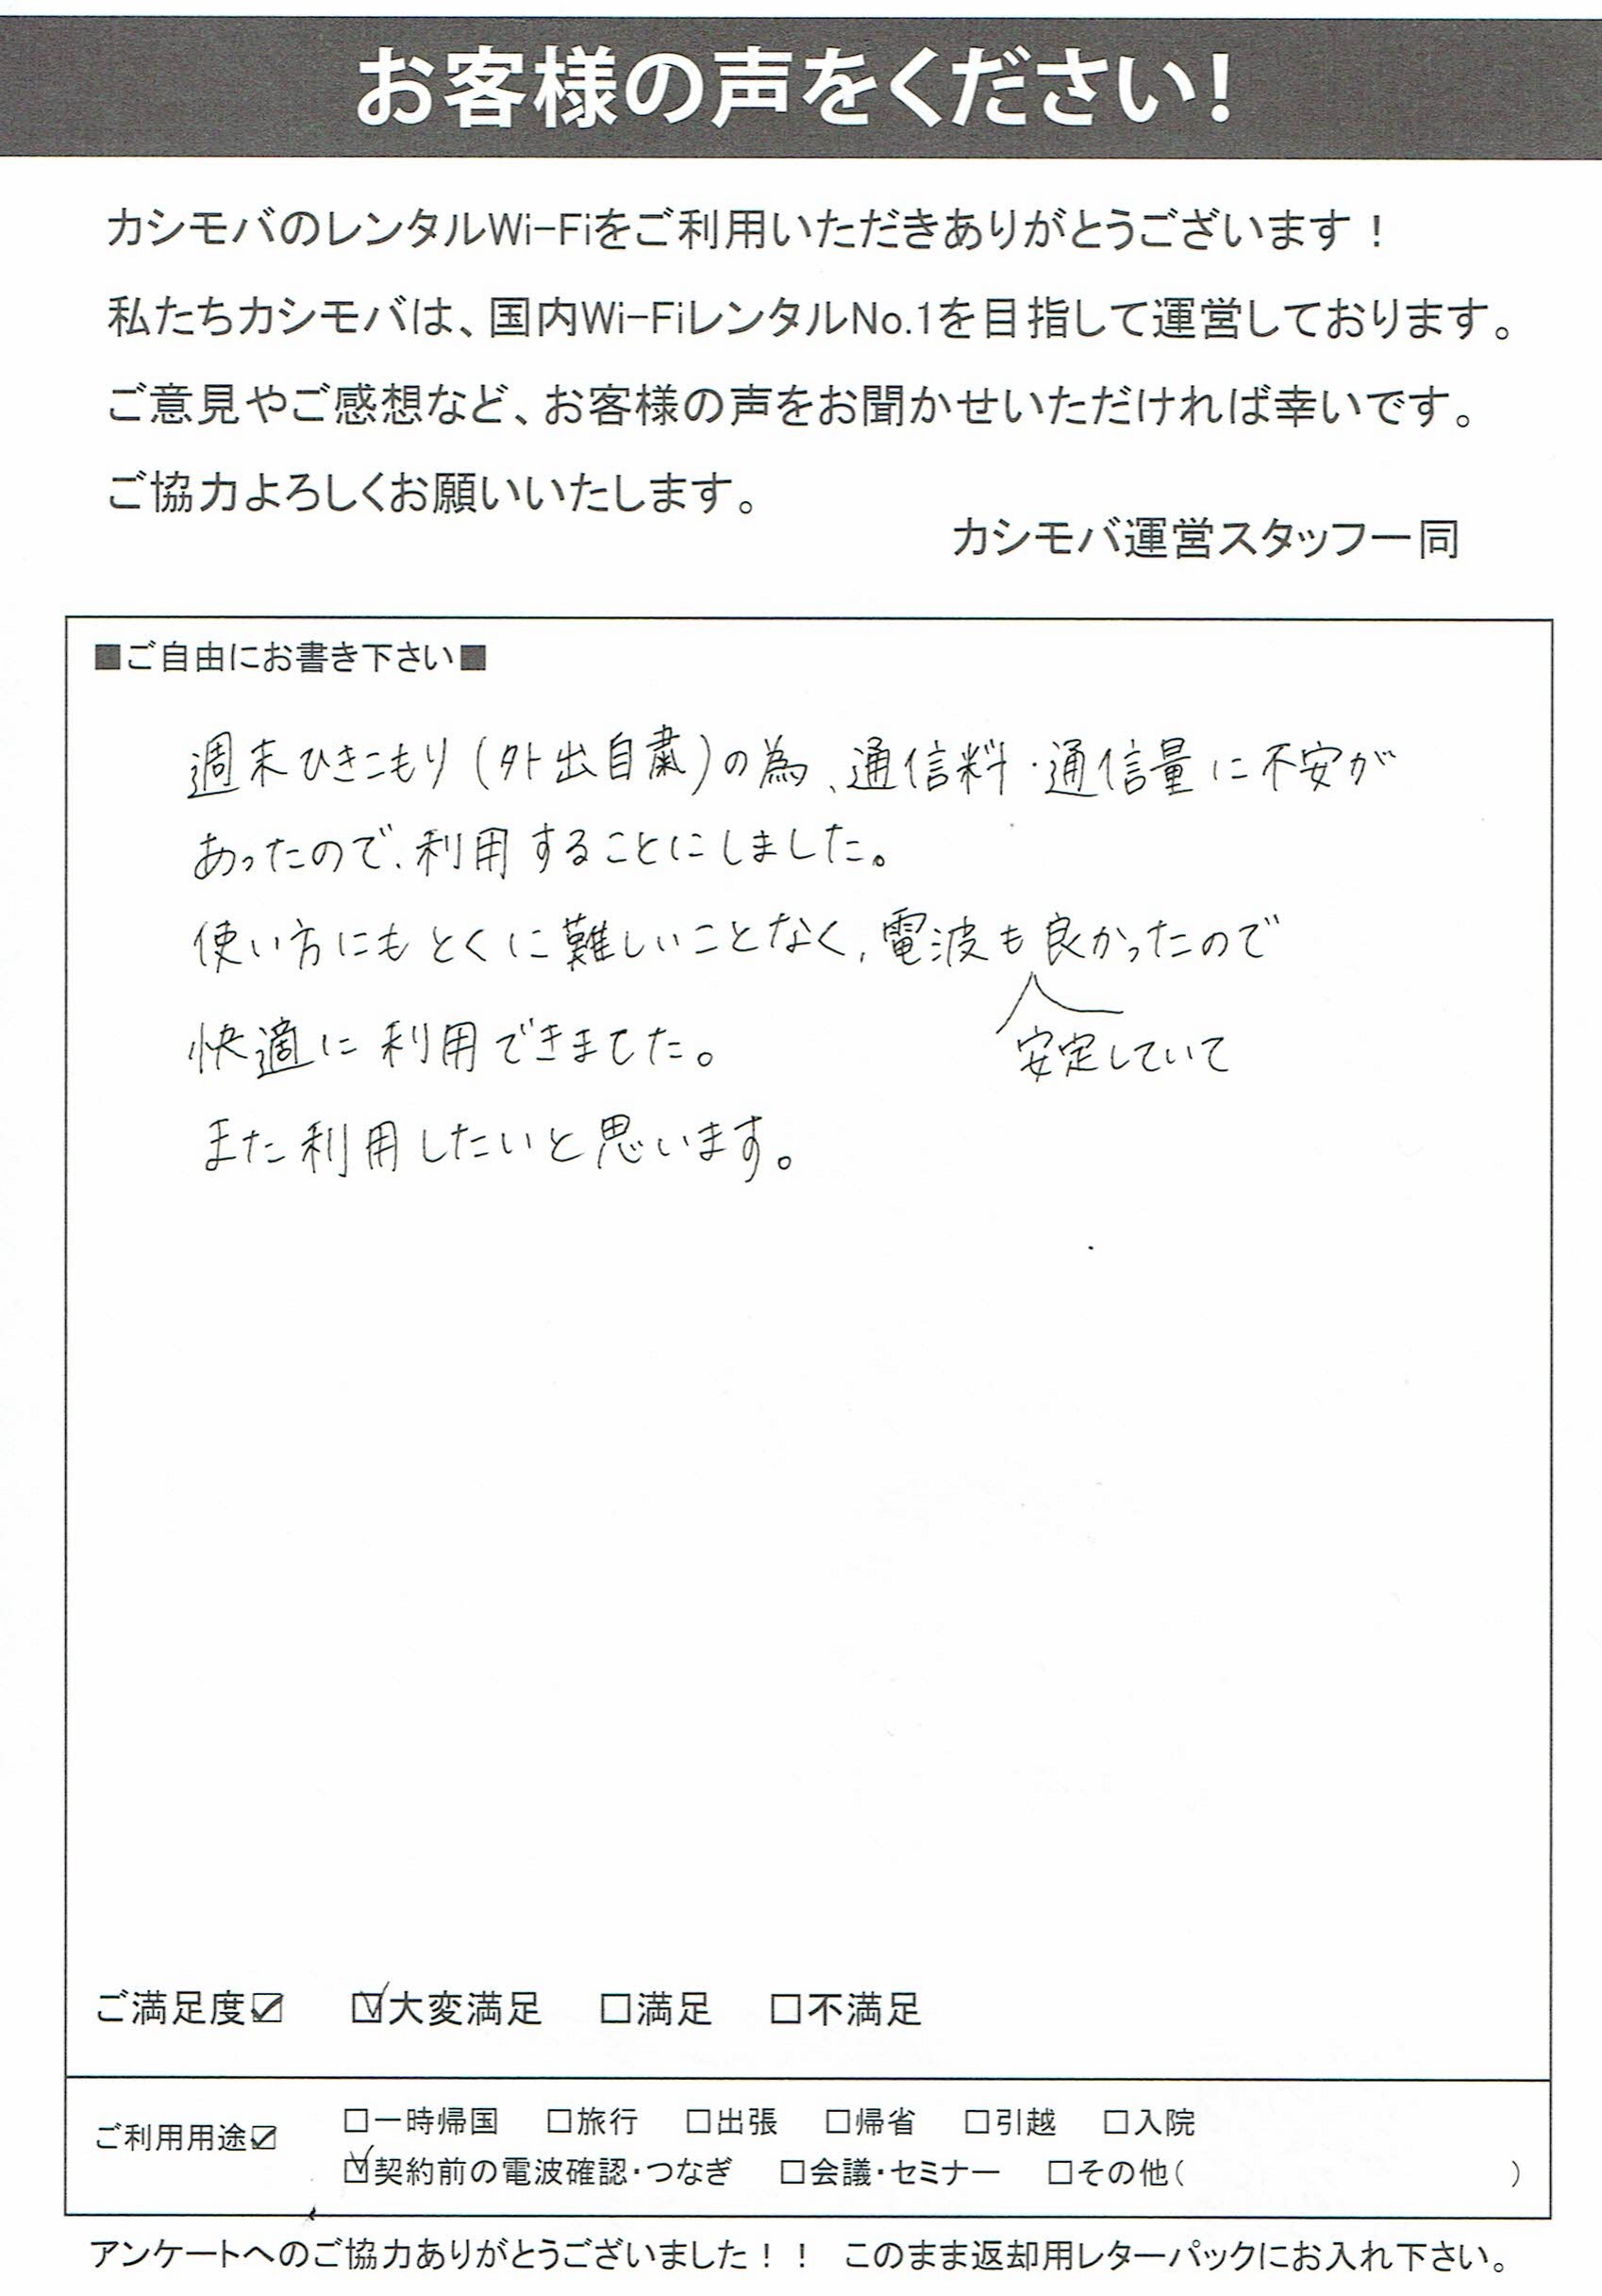 お客様の声をください!
カシモバのレンタルWi-Fiをご利用いただきありがとうございます！
私たちカシモバは、国内Wi-FiレンタルNo.1を目指して運営しております。
ご意見やご感想など、お客様の声をお聞かせいただければ幸いです。
ご協力よろしくお願いいたします。
カシモバ運営スタッフ一同
■ご自由にお書き下さい■
週末ひきこもり(外出自粛)の為、通信料・通信量に不安が
あったので、利用することにしました。
使い方にもとくに難しいことなく、電波も良かったので
安定していて
快適に利用できました。
また利用したいと思います。
ご満足度☑ ☑大変満足 □満足 □不満足
ご利用用途☑ □一時帰国 □旅行 □出張 □帰省 □引越 □入院
☑契約前の電波確認・つなぎ □会議・セミナー □その他( )
アンケートへのご協力ありがとうございました！！ このまま返却用レターパックにお入れ下さい。